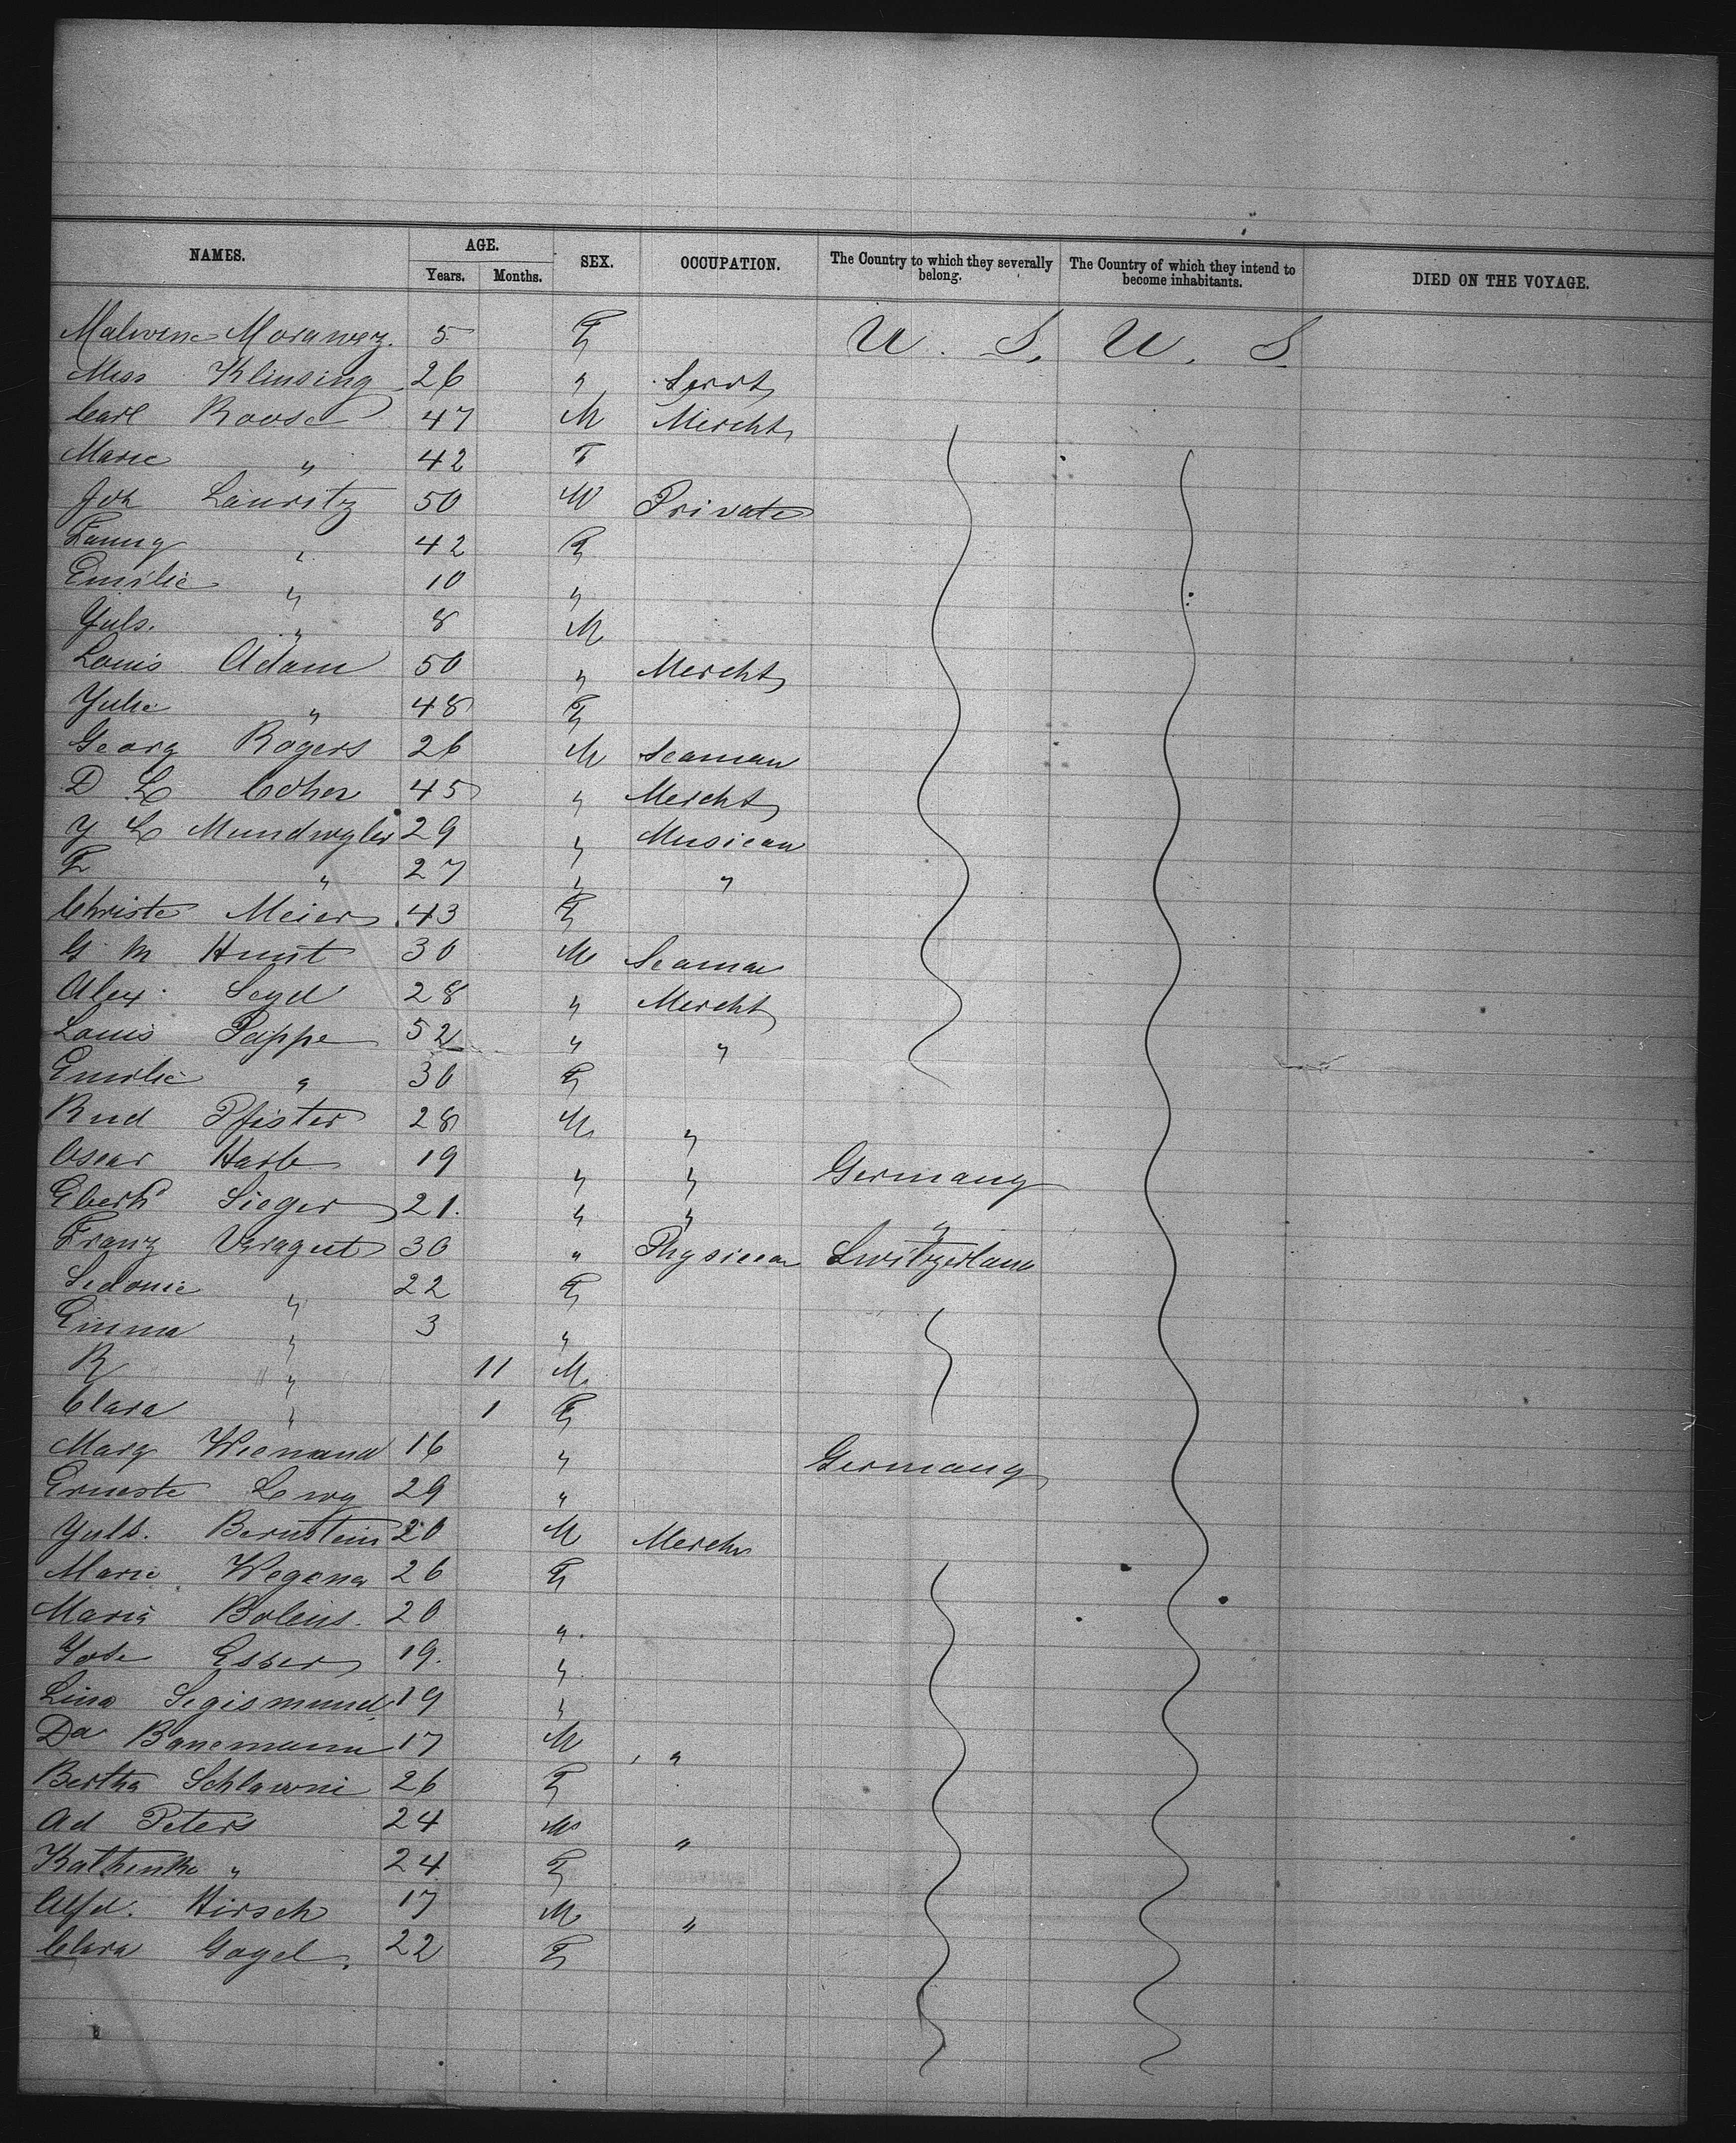 NAMES. AGE. SEX. OCCUPATION. The Country to which they severally belong. The Country of which they intend to become inhabitants. DIED ON THE VOYAGE.
Years. Months.
Malwine Morawez. 5 F U. S. U. S
Miss Klinsing 26 " Servt
Carl Roose 47 M Mercht
Marie " 42 F
Joh Lauritz 50 M Private
Fanny " 42 F
Emilie " 10 "
Juls. " 8 M
Louis Adam 50 " Mercht
Julie " 48 F
Georg Rogers 26 M Seaman
D L Cohen 45 " Mercht
J L Mundwyler 29 " Musican
F " 27 " "
Christe Meier 43 F
G M Hunt 30 M Seaman
Alex. Seyd 28 " Mercht
Louis Pappe 52 " "
Emilie " 30 F
Rud Pfister 28 M "
Oscar Harb 19 " " Germany
Eberhd Sieger 21. " " "
Franz Veragut 30 " Physican Switzerland
Sidonie " 22 F
Emma " 3 "
R " 11 M
Clara " 1 F
Marg Wienand 16 " Germany
Erneste Lewy 29 "
Juls. Bernstein 20 M Mercht
Marie Wegena 26 F
Maria Boleus. 20 "
Jose Esser 19. "
Lina Segismund 19 "
Da Banemann 17 M "
Bertha Schlawni 26 F
Ad Peters 24 M "
Kathinka " 24 F
Alfd. Hirsch 17 M "
Clara Gogel. 22 F